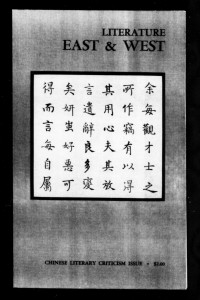 LITERATURE
EAST & WEST
余每觀才士之
所作竊有以得
其用心夫其放
言遣辭良多變
矣妍蚩好惡可
得而言每自屬
CHINESE LITERARY CRITICISM ISSUE